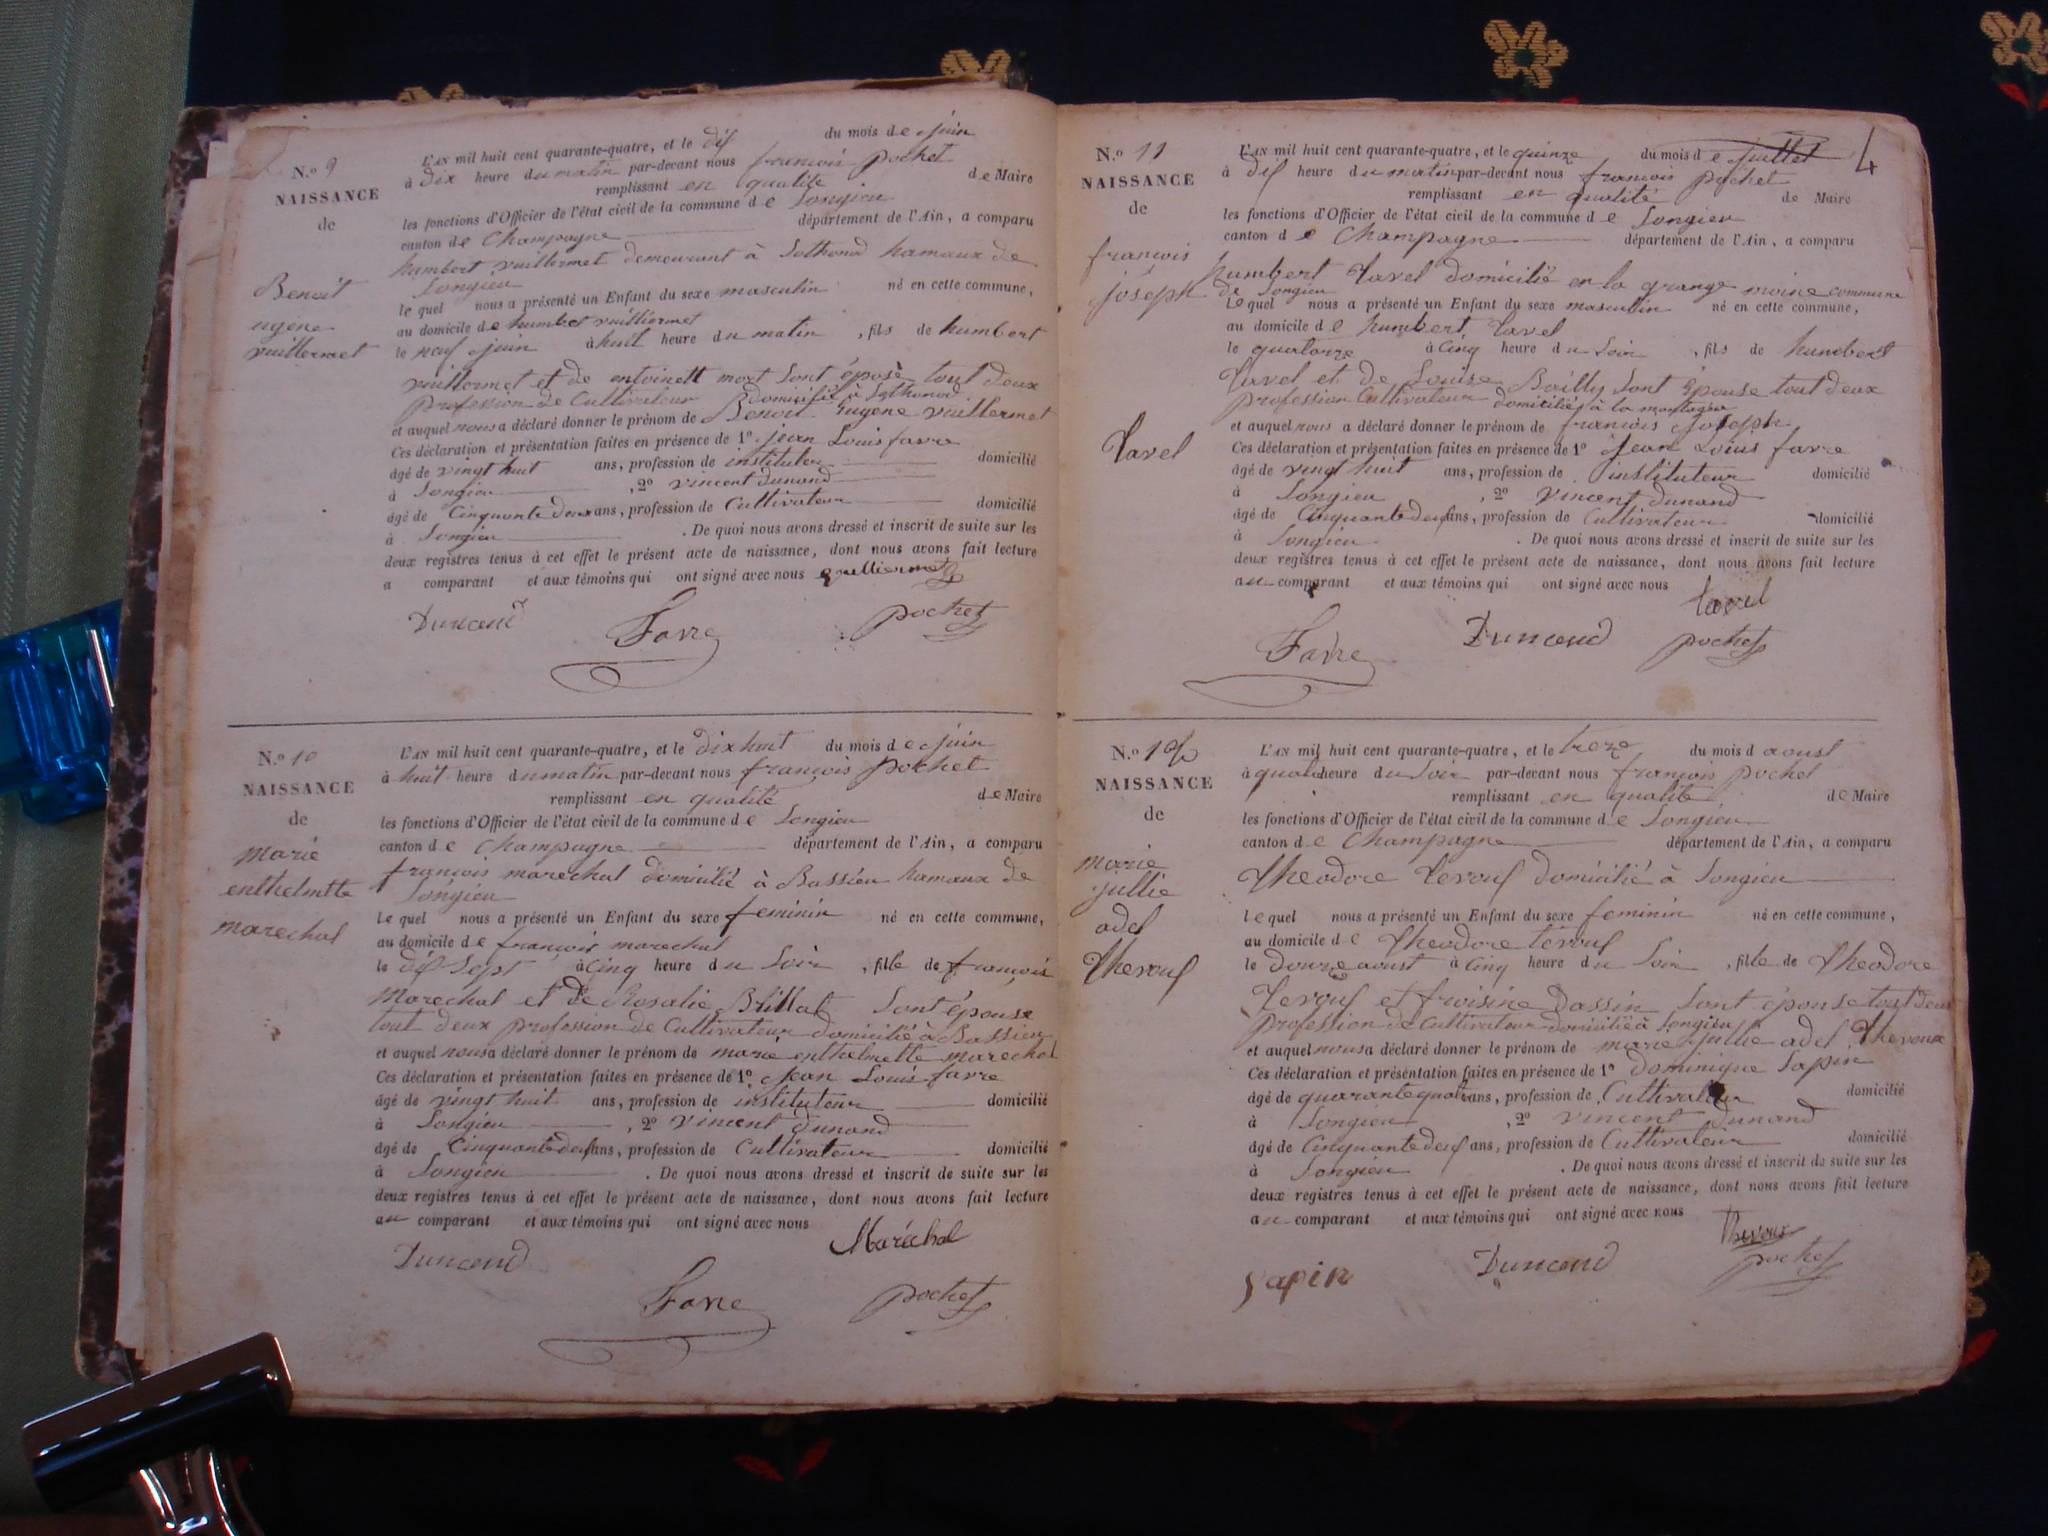 N.o 9
NAISSANCE
de
Benoit
ugène
vuillermet
L'AN mil huit cent quarante-quatre, et le dix du mois de juin
à dix heure du matin par-devant nous françois pochet
remplissant en qualité de Maire
les fonctions d'Officier de l'état civil de la commune de Songieu
canton de Champagne département de l'Ain, a comparu
humbert vuillermet demeurant à Sothonod hamaux de
Songieu
le quel nous a présenté un Enfant du sexe masculin né en cette commune,
au domicile de humbet vuilliermet
le neuf juin à huit heure du matin, fils de humbert
vuillermet et de entoinett mort sont éposè tout deux
profession de Cultivateur domicilié à Sothonod
et auquel nous a déclaré donner le prénom de Benoit Eugene vuillermet
Ces déclaration et présentation faites en présence de 1o jean Louis favre
âgé de vingt huit ans, profession de instituteur domicilié
à Songieu, 2o vincent dunand
âgé de Cinquante deux ans, profession de Cultivateur domicilié
à Songieu. De quoi nous avons dressé et inscrit de suite sur les
deux registres tenus à cet effet le présent acte de naissance, dont nous avons fait lecture
a comparant et aux témoins qui ont signé avec nous
Dunand Favre pochet
N.o 10
NAISSANCE
de
marie
enthelmtte
marechal
L'AN mil huit cent quarante-quatre, et le dix huit du mois de juin
à huit heure du matin par-devant nous françois pochet
remplissant en qualité de Maire
les fonctions d'Officier de l'état civil de la commune de Songieu
canton de Champagne département de l'Ain, a comparu
françois marechal domicilié à Bassieu hamaux de
Songieu
Le quel nous a présenté un Enfant du sexe feminin né en cette commune,
au domicile de françois marechal
le dix Sept à Cinq heure du Soir, fille de françois
Marechal et de Rosalie Brillat Sont épouse
tout deux profession de Cultivateur domicilié à Bassieu
et auquel nous a déclaré donner le prénom de marie enthelmette marechal
Ces déclaration et présentation faites en présence de 1o Jean Louis favre
âgé de vingt huit ans, profession de instituteur domicilié
à Songieu, 2o vincent dunand
âgé de Cinquante deux ans, profession de Cultivateur domicilié
à Songieu. De quoi nous avons dressé et inscrit de suite sur les
deux registres tenus à cet effet le présent acte de naissance, dont nous avons fait lecture
au comparant et aux témoins qui ont signé avec nous
Maréchal
Dunand Favre pochet
4
N.o 11
NAISSANCE
de
françois
joseph
Tavel
L'AN mil huit cent quarante-quatre, et le quinze du mois de juillet
à dix heure du matin par-devant nous françois pochet
remplissant en qualité de Maire
les fonctions d'Officier de l'état civil de la commune de Songieu
canton de Champagne département de l'Ain, a comparu
humbert Tavel domicilié en la grange moine commune
de Songieu
Le quel nous a présenté un Enfant du sexe masculin né en cette commune,
au domicile de humbert Tavel
le quatorze à Cinq heure du Soir, fils de humbert
Tavel et de Louise Bailly Sont Épouse tout deux
profession Cultivateur domiciliés à la montagne
et auquel nous a déclaré donner le prénom de françois Joseph
Ces déclaration et présentation faites en présence de 1o Jean Louis favre
âgé de vingt huit ans, profession de instituteur domicilié
à Songieu, 2o vincent dunand
âgé de Cinquante deux ans, profession de Cultivateur domicilié
à Songieu. De quoi nous avons dressé et inscrit de suite sur les
deux registres tenus à cet effet le présent acte de naissance, dont nous avons fait lecture
au comparant et aux témoins qui ont signé avec nous
tavel
Favre Dunand pochet
N.o 12
NAISSANCE
de
marie
jullie
adel
Thevouf
L'AN mil huit cent quarante-quatre, et le treze du mois d aoust
à quatre heure du Soir par-devant nous françois pochet
remplissant en qualité de Maire
les fonctions d'Officier de l'état civil de la commune de Songieu
canton de Champagne département de l'Ain, a comparu
Theodore Tevouf domicilié à Songieu
le quel nous a présenté un Enfant du sexe feminin né en cette commune,
au domicile de Theodore tévouf
le douze aoust à Cinq heure du Soir, fille de Theodore
Tevouf et froisine dassin Sont épouse tout deux
profession de Cultivateur domicilié à Songieu
et auquel nous a déclaré donner le prénom de marie jullie adel Thevoux
Ces déclaration et présentation faites en présence de 1o dominique Sapin
âgé de quarante quatre ans, profession de Cultivateur domicilié
à Songieu, 2o vincent dunand
âgé de Cinquante deux ans, profession de Cultivateur domicilié
à Songieu. De quoi nous avons dressé et inscrit de suite sur les
deux registres tenus à cet effet le présent acte de naissance, dont nous avons fait lecture
au comparant et aux témoins qui ont signé avec nous
Thevoux
Sapin Dunand pochet